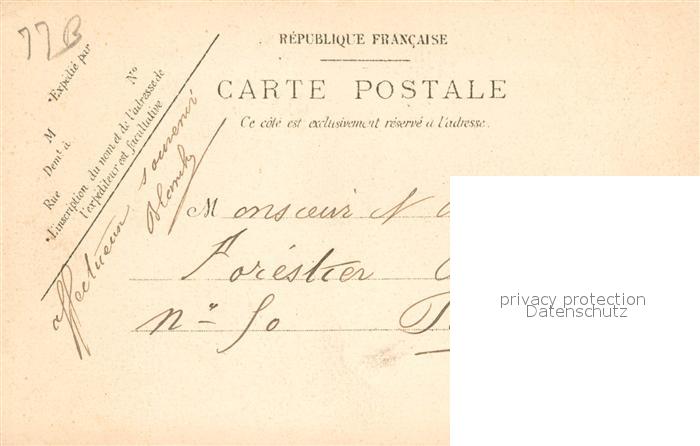 77B
RÉPUBLIQUE FRANÇAISE
CARTE POSTALE
Ce côté est exclusivement réservé à l'adresse.
Expédié par
M N°
Demt à
Rue
L'inscription du nom et de l'adresse de
l'expéditeur est facultative
affectueux souvenir
Blanche
Monsieur N
Foréstier
n° 50
privacy protection
Datenschutz